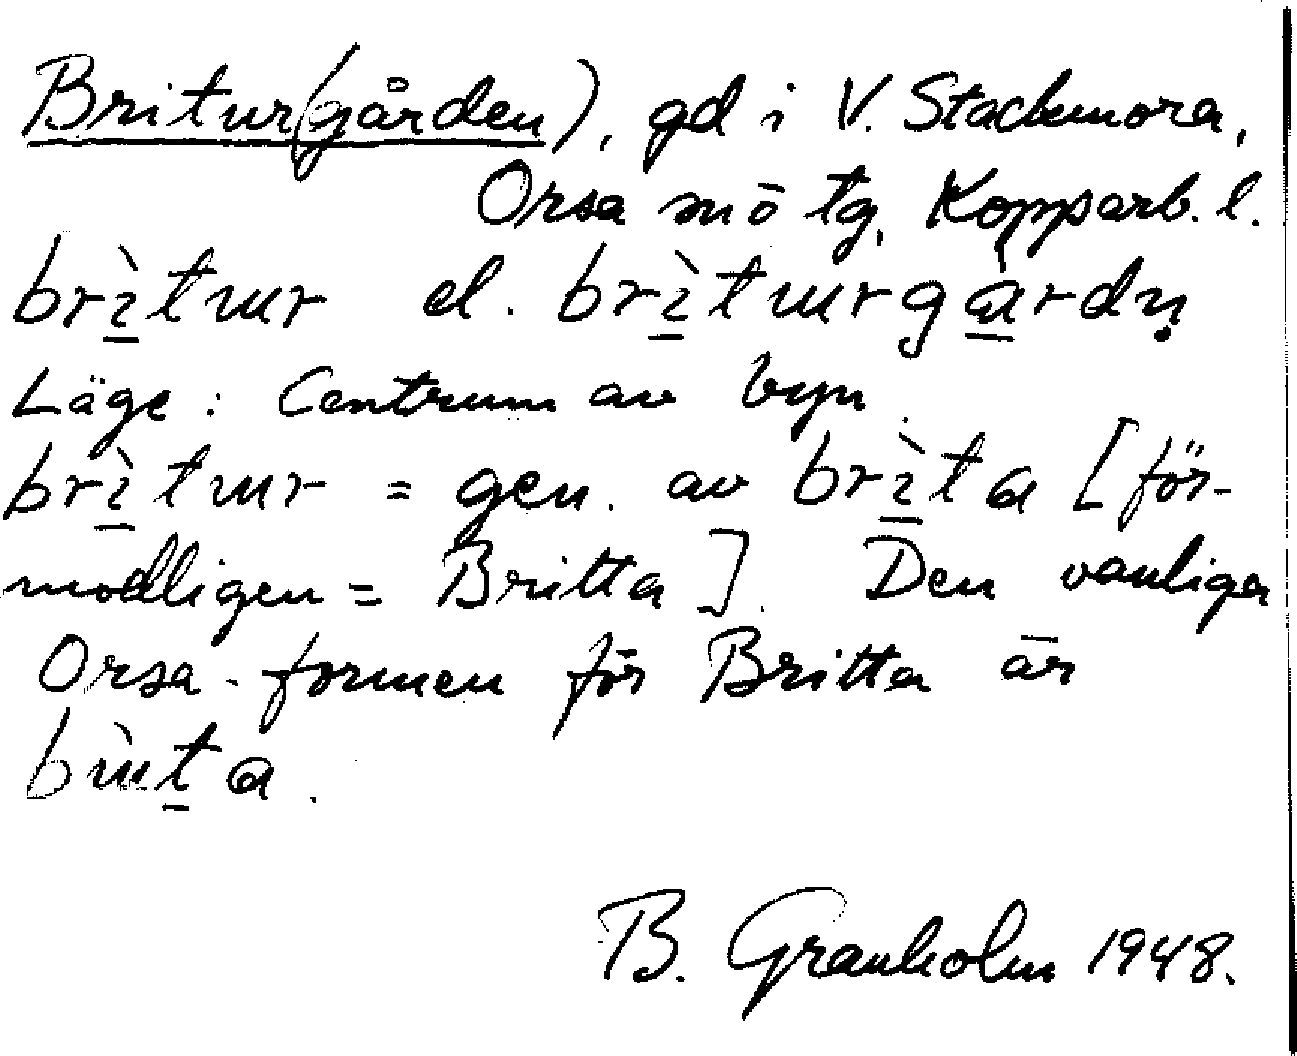 Britur(gården), gd i V. Stackmora,
Orsa sn ö tg, Kopparb. l.
brìtur el. brìturgàrdn̥
Läge: Centrum av byn.
brìtur = gen. av brìta [för-
modligen = Britta]. Den vanliga
Orsa-formen för Britta är
B. Granholm 1948.